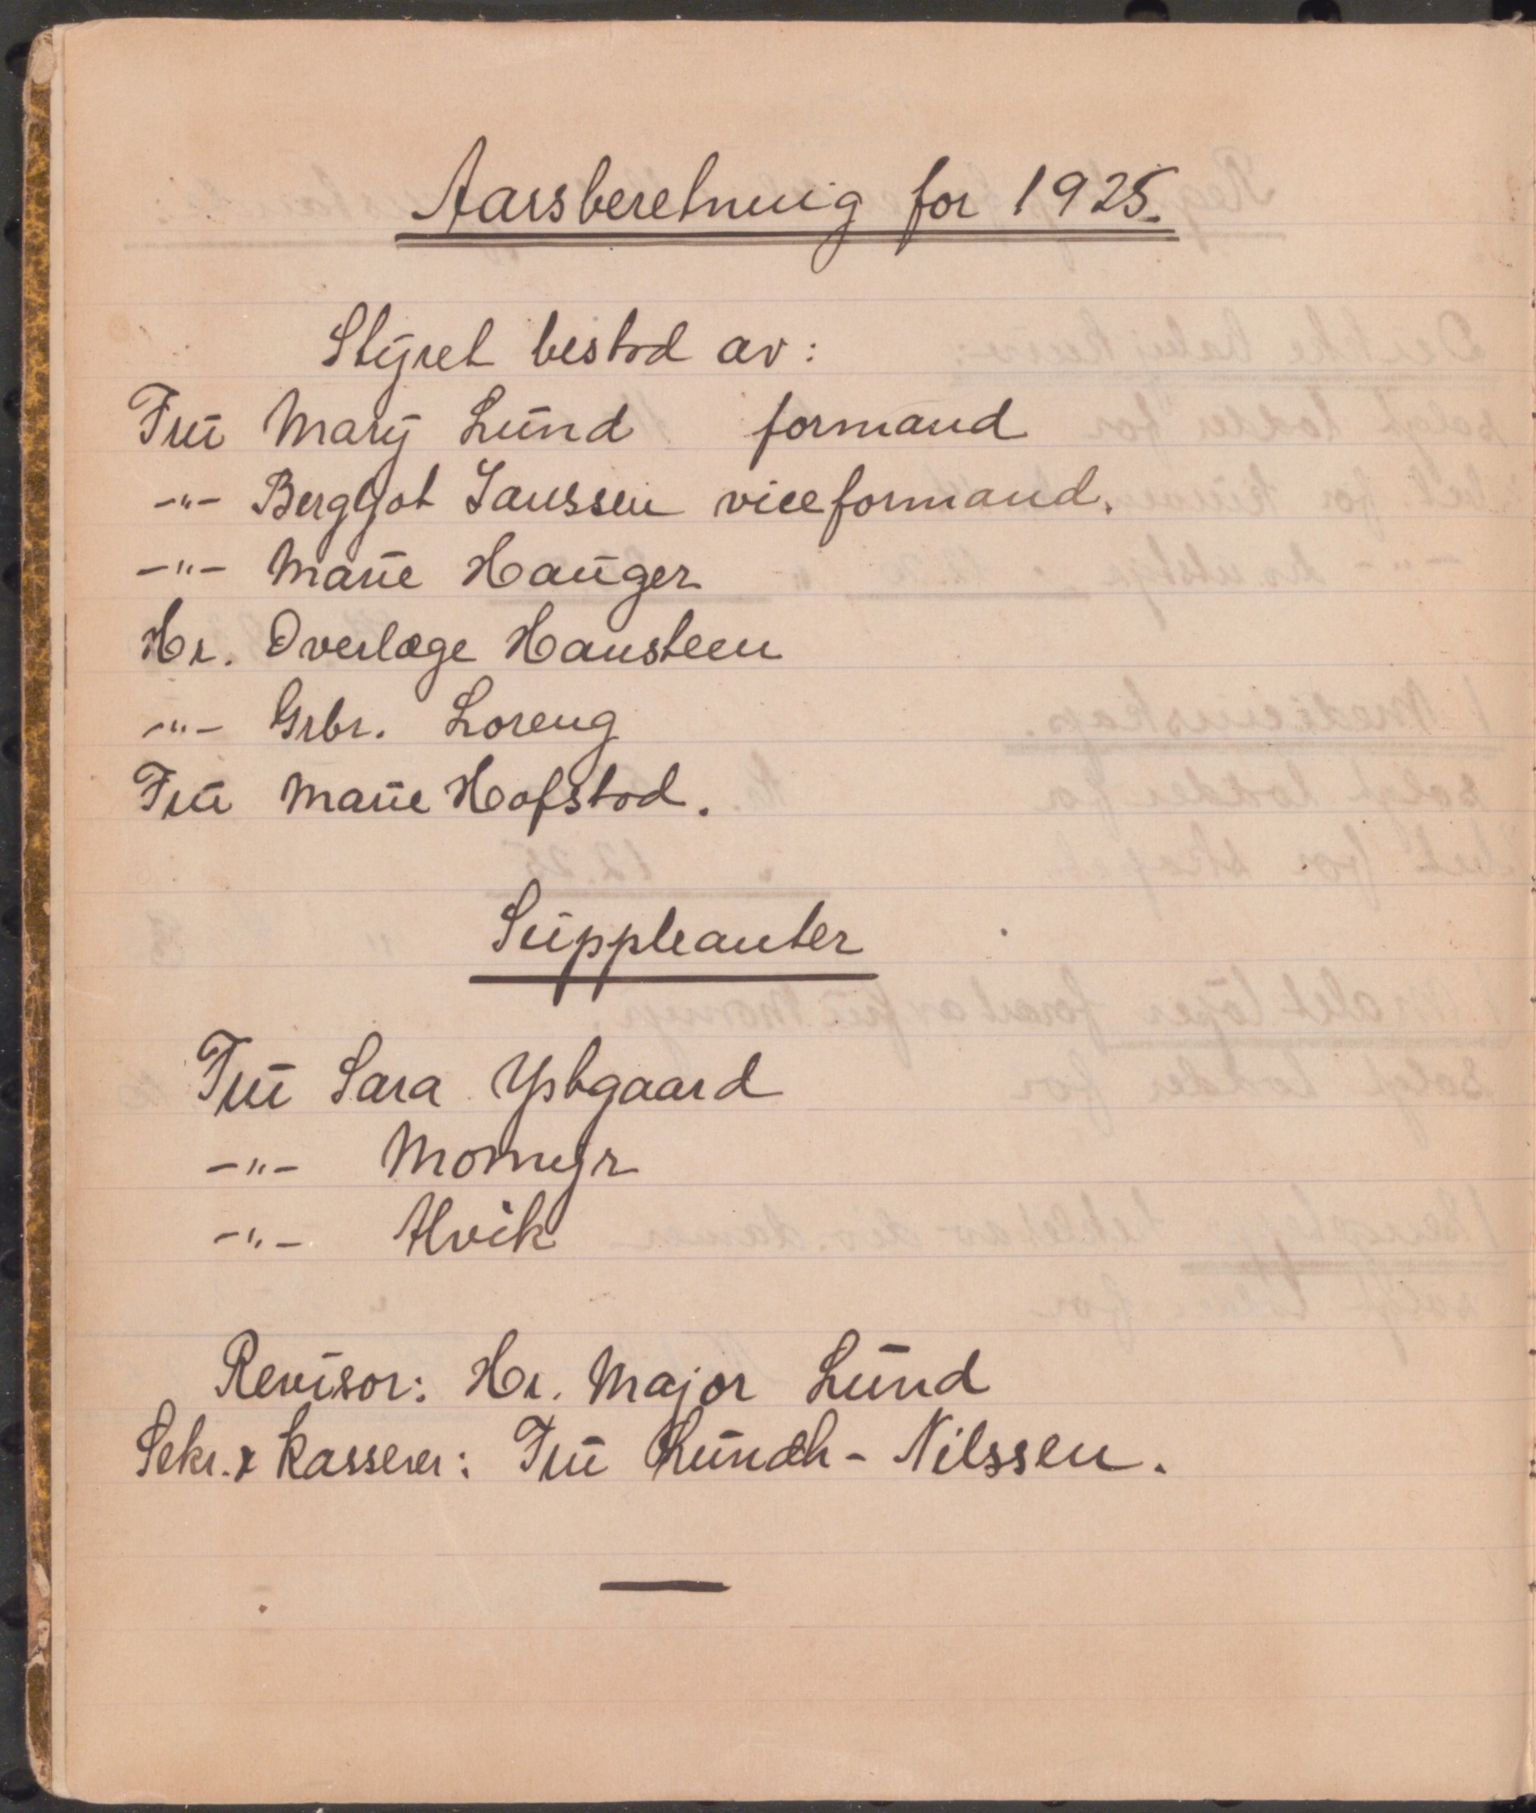 Aarsberetning for 1925.
Styret bestod av:
Fru Mary Lund formand
-"- Bergljot Janssen viceformand.
-"- Marie Hauger
Hr. Overlæge Hansteen
-"- Grbr. Loreng
Fru Marie Hofstad.
Suppleanter
Fru Sara Ystgaard
-"- Momyr
-"- Alvik
Revisor: Hr. Major Lund
Sekr. & Kasserer: Fru - Nilssen.